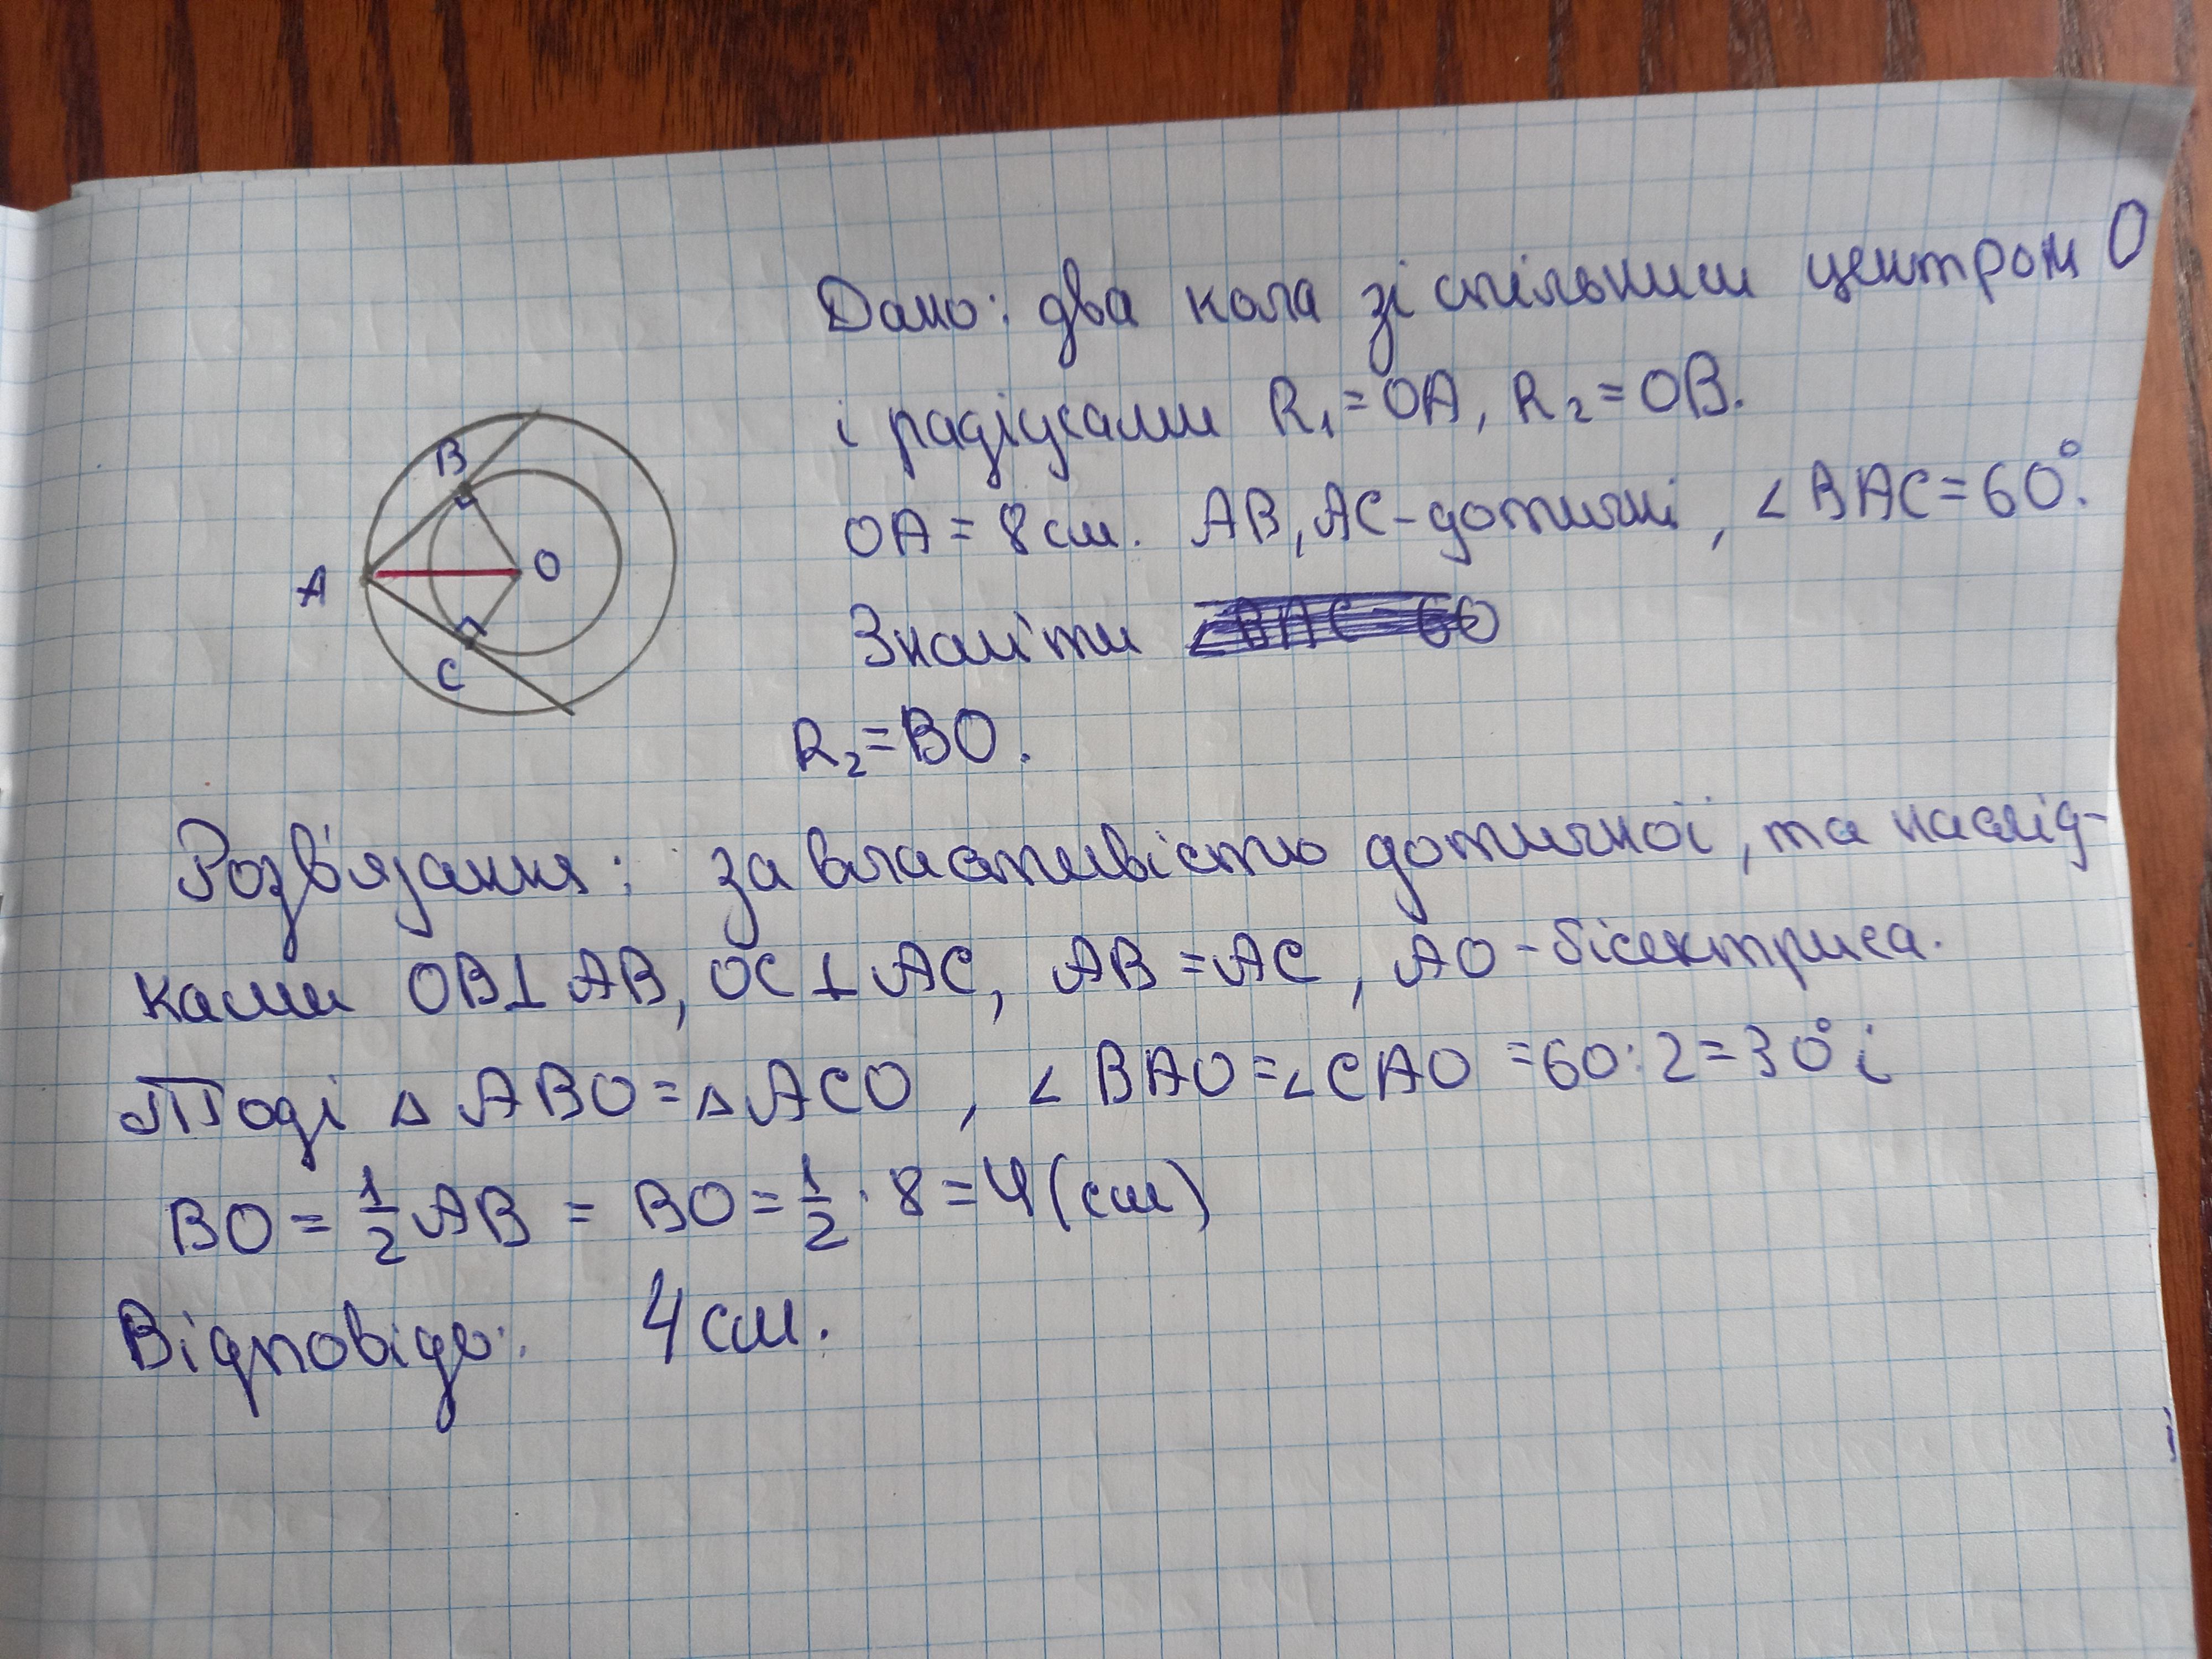 Дано: два кола зі спільним центром О
і радіусами R₁=OA, R₂=OB.
OA = 8 см. AB, AC - дотичні, ∠BAC=60°.
Знайти ∠BAC 60
R₂=BO.
B
A
O
C
Розв'язання: за властивістю дотичної, та наслід-
ками OB⊥AB, OC⊥AC, AB=AC, AO-бісектриса.
Тоді △ABO=△ACO, ∠BAO=∠CAO=60:2=30° і
BO = 1/2 AB = BO = 1/2 · 8 = 4 (см)
Відповідь: 4 см.